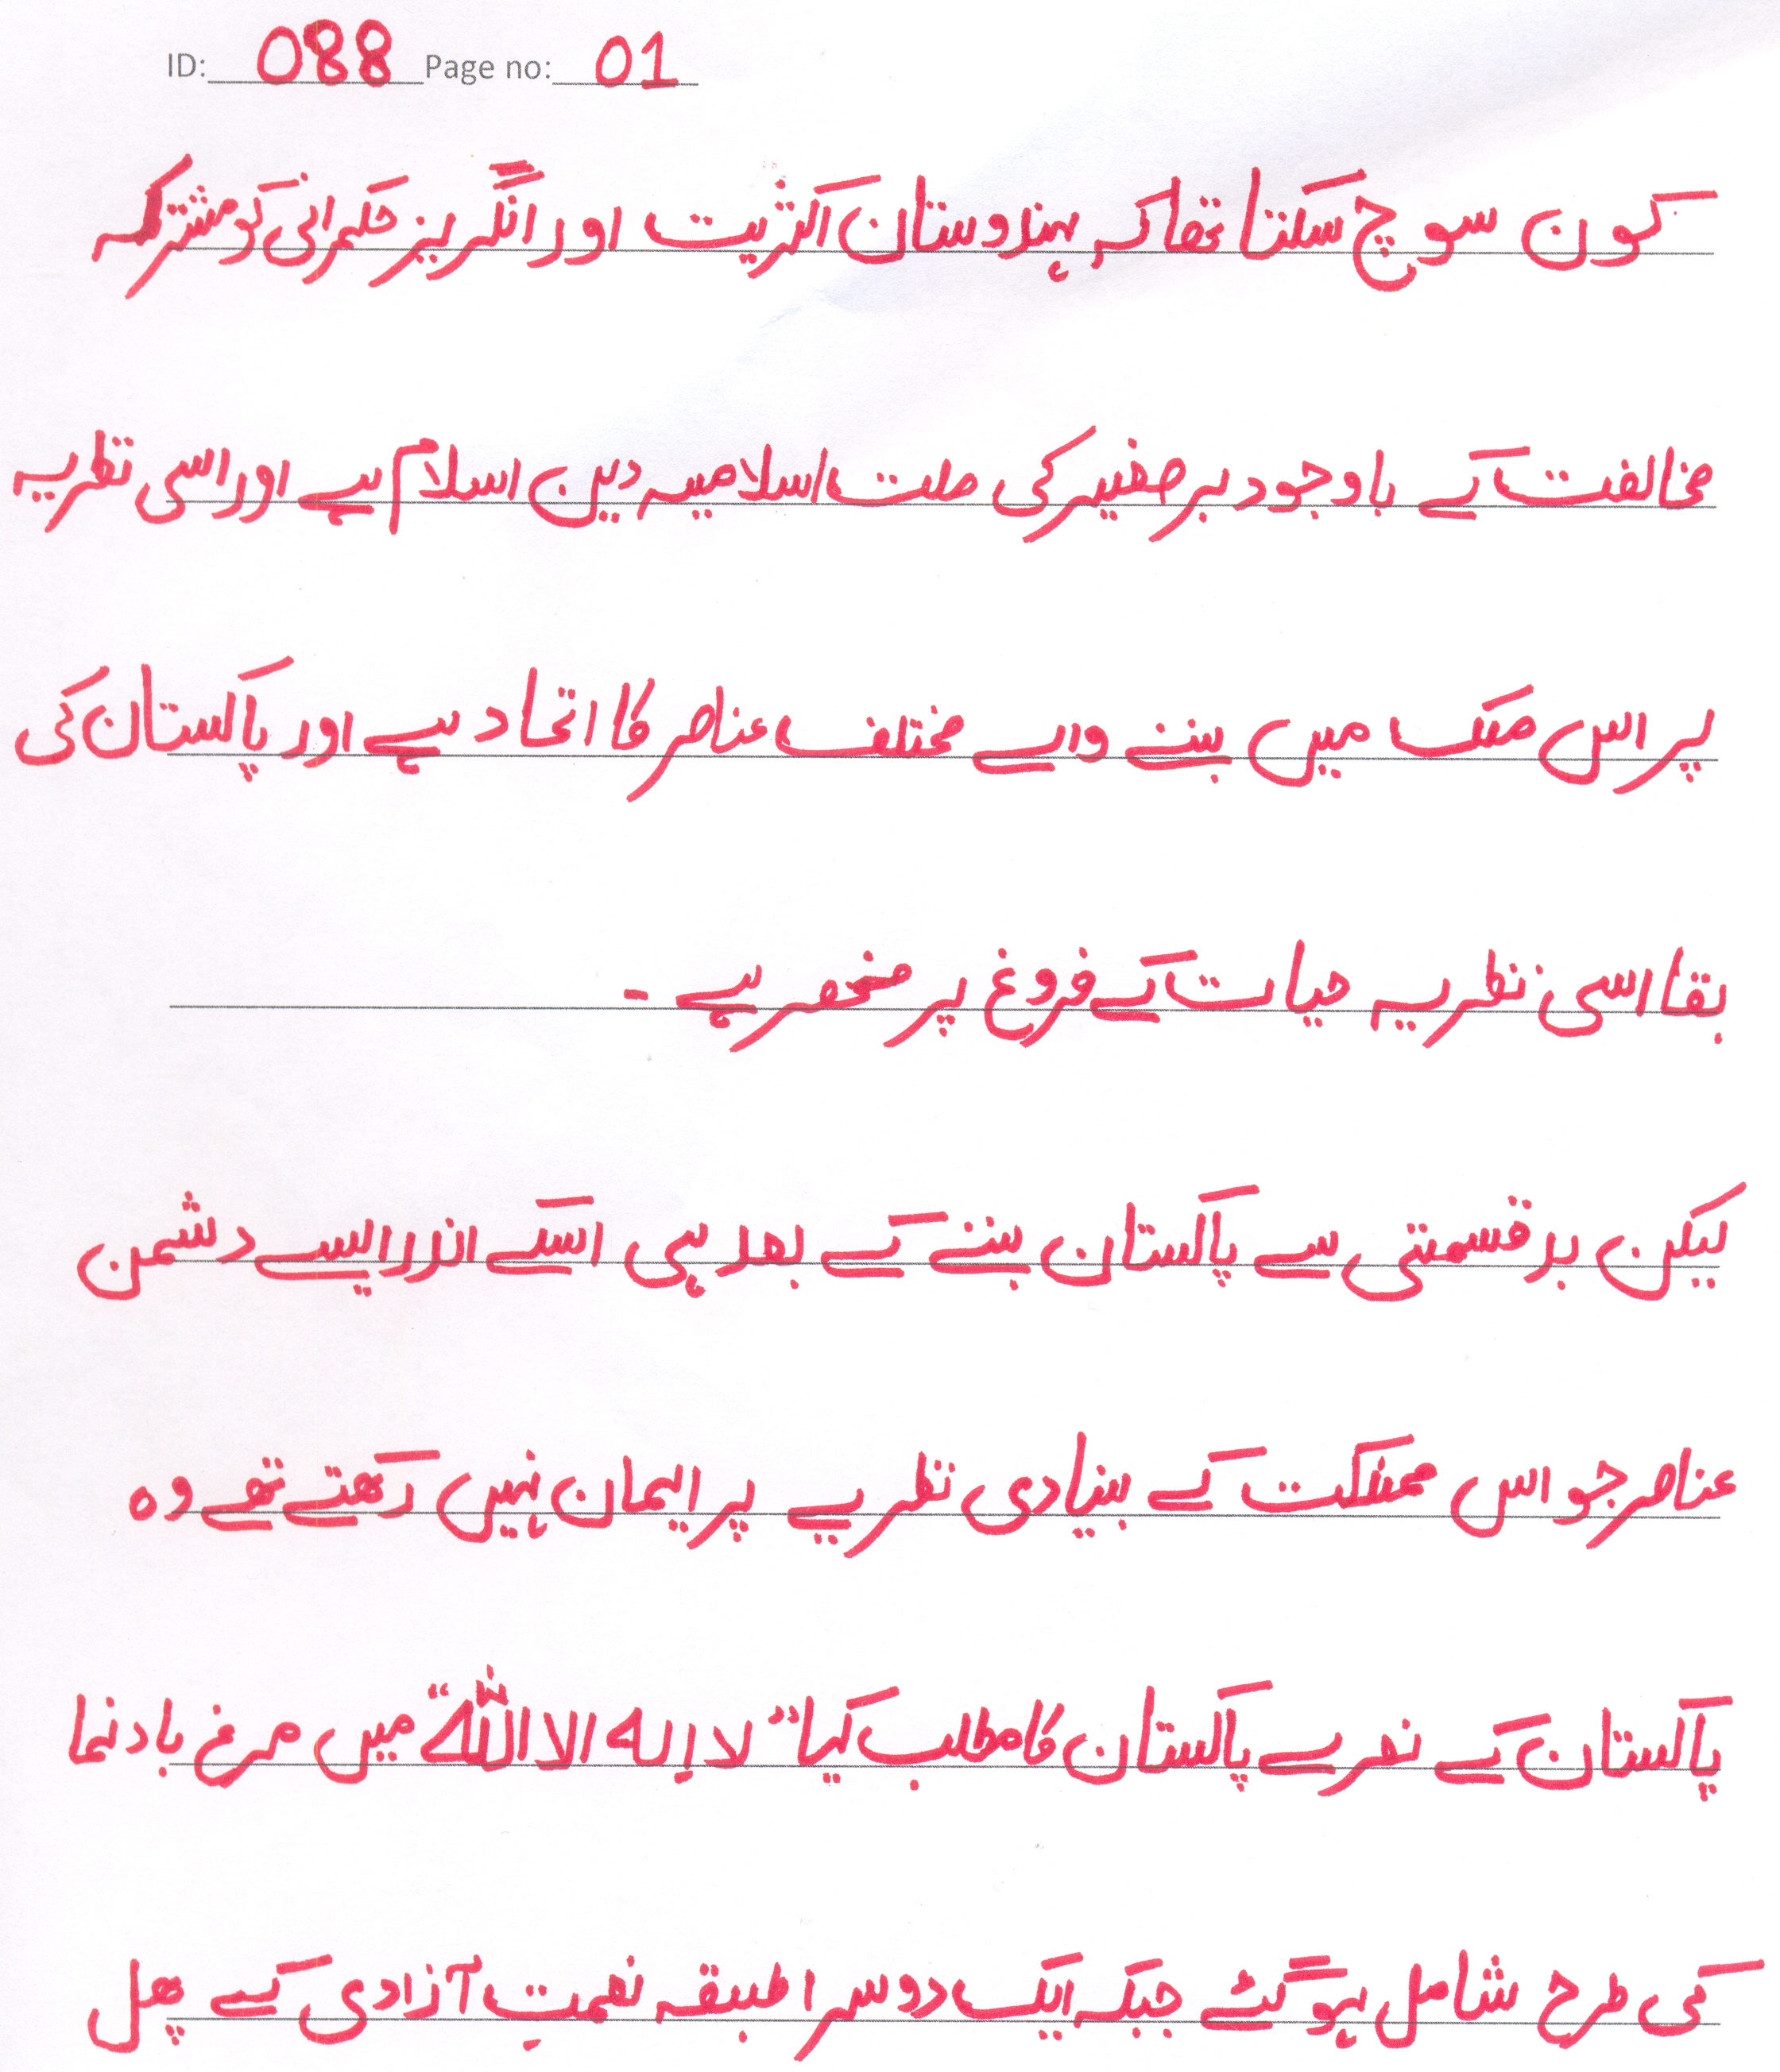 ID: 088 Page no: 01
کون سوچ سکتا تھا کہ ہندوستان اکثریت اور انگریز حکمرانی کو مشترکہ
مخالفت کے باوجود برصغیر کی ملت اسلامیہ دین اسلام ہے اور اسی نظریہ
پر اس ملک میں بننے والے مختلف عناصر کا اتحاد ہے اور پاکستان کی
بقا اسی نظریہ حیات کے فروغ پر منحصر ہے ۔
لیکن بدقسمتی سے پاکستان بننے کے بعد ہی اسکے اندر ایسے دشمن
عناصر جو اس مملکت کے بنیادی نظریے پر ایمان نہیں رکھتے تھے وہ
پاکستان کے نعرے پاکستان کا مطلب کیا "لا اِلہ الا اللہ" میں مرغ بادنما
کی طرح شامل ہو گئے جبکہ ایک دوسرا طبقہ نعمتِ آزادی کے پھل